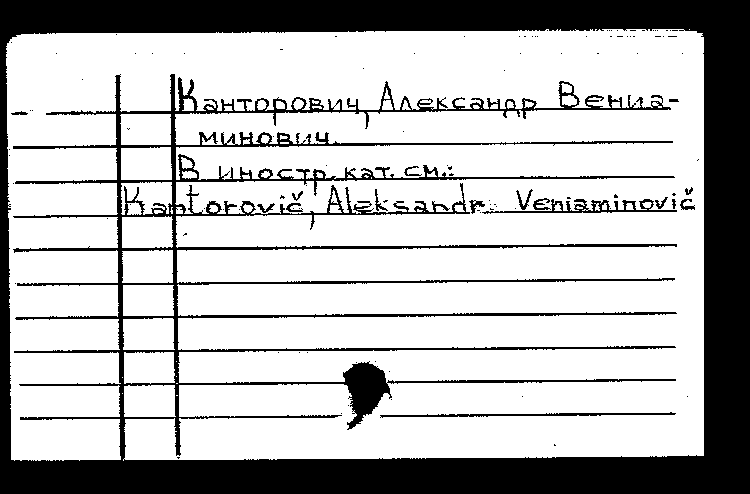 Канторович, Александр Вениа-
минович.
В иностр. кат. см.:
Kantorovič, Aleksandr Veniaminovič